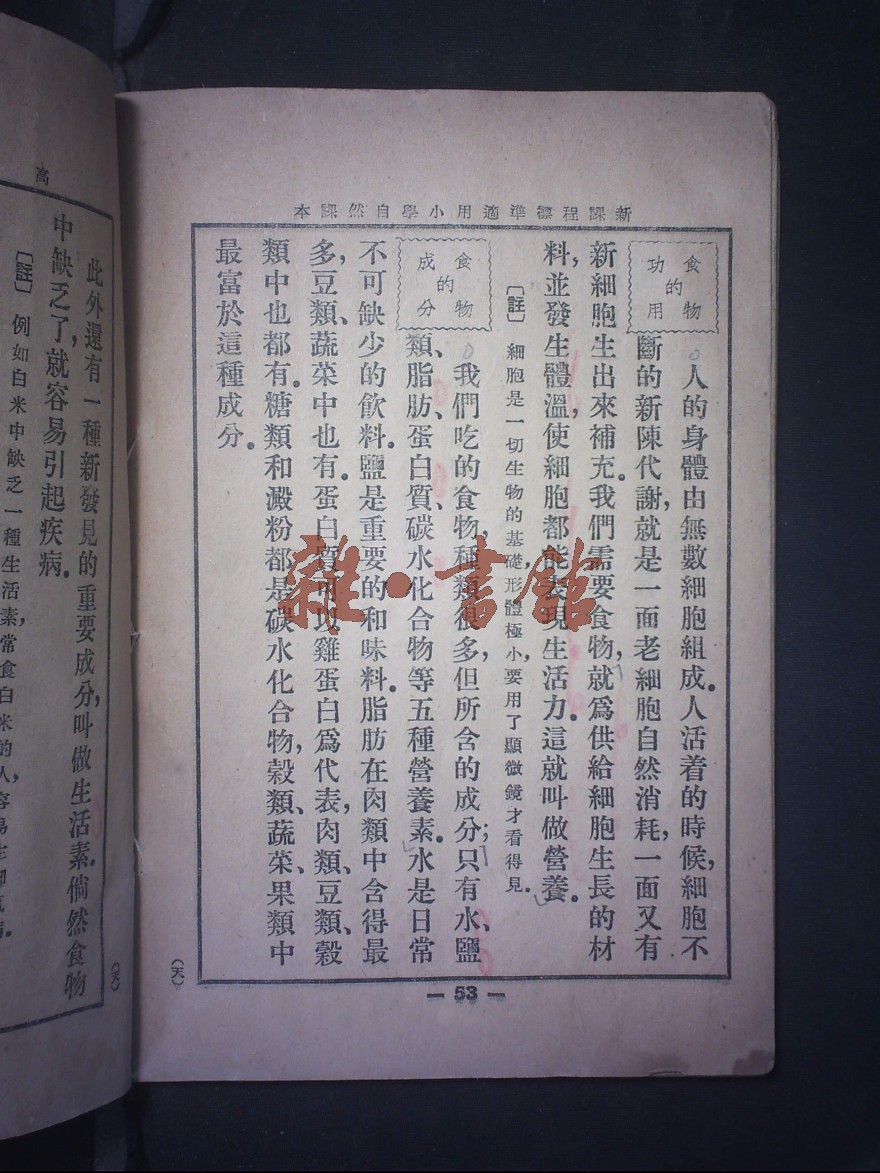 新課程標準適用小學自然課本
食物的功用
人的身體由無數細胞組成。人活着的時候，細胞不
斷的新陳代謝，就是一面老細胞自然消耗，一面又有
新細胞生出來補充。我們需要食物，就爲供給細胞生長的材
料，並發生體溫，使細胞都能表現生活力。這就叫做營養。
〔註〕細胞是一切生物的基礎，形體極小，要用了顯微鏡才看得見。
食物的成分
我們吃的食物，種類很多，但所含的成分；只有水、鹽
類、脂肪、蛋白質、碳水化合物等五種營養素。水是日常
不可缺少的飲料。鹽是重要的和味料。脂肪在肉類中含得最
多，豆類、蔬菜中也有。蛋白質可以雞蛋白爲代表，肉類、豆類、穀
類中也都有。糖類和澱粉都是碳水化合物，穀類、蔬菜、果類中
最富於這種成分。
— 53 —
（天）
雜·書館
高
此外還有一種新發見的重要成分，叫做生活素。倘然食物
中缺乏了，就容易引起疾病。
〔註〕例如白米中缺乏一種生活素，常食白米的人，容易生腳氣病。
（天）